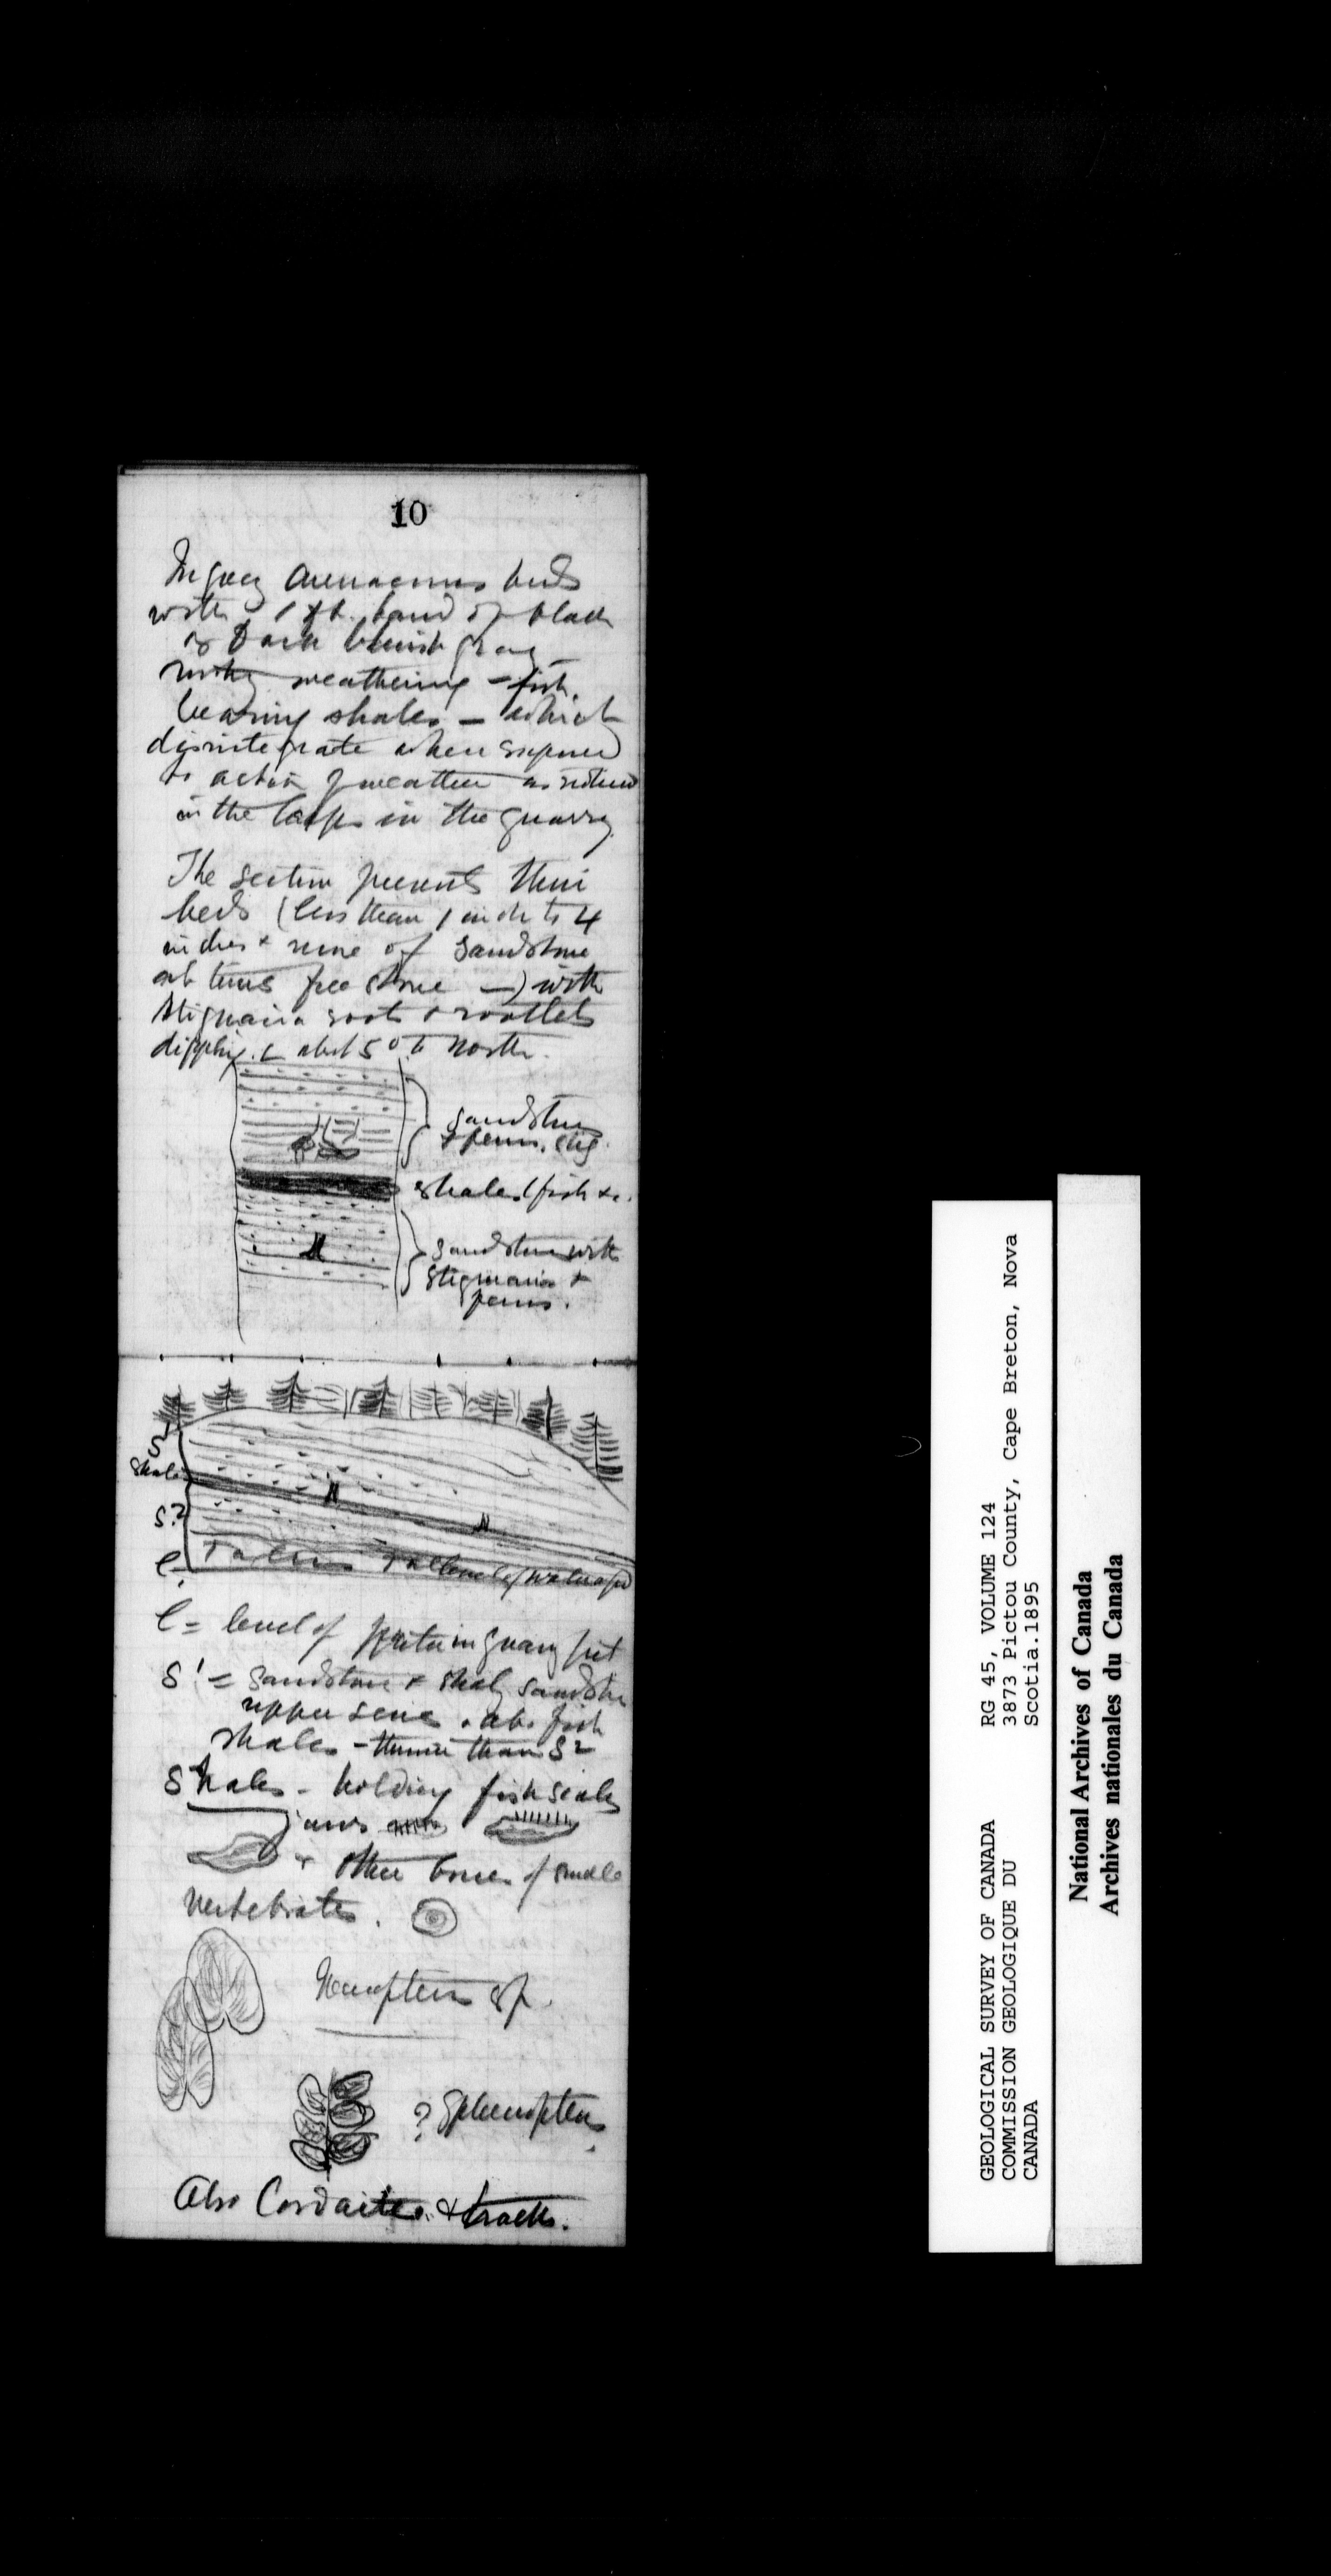 10
In grey arenaceous beds
with 1 ft. band of black
or dark bluish gray
rusty weathering – fish
bearing shales – which
disintegrate when exposed
to action of weather as noticed
in the in the quarry.
The section presents thin
beds (less than 1 inch to 4
inches & more of sandstone
at times free stone –) with
Stigmaria roots & rootlets
dipping abt 5° to North.
sandstone
& ferns. Stig.
shales (fish &c.
sandstone with
Stigmaria &
ferns.
S1
Shale
S2
l
Talus Talus level of water
l = level of water in quarry pit
S1 = sandstone & shaly sandstone
upper series. abv. fish
shales – thinner than S2
Shales – holding fish scales
jaws
& other bones of small
vertebrates.
Neuropteris sp.
? Sphenopteris
Also Cordaites. & tracks.
GEOLOGICAL SURVEY OF CANADA
COMMISSION GEOLOGIQUE DU
CANADA
RG 45, VOLUME 124
3873 Pictou County, Cape Breton, Nova
Scotia.1895
National Archives of Canada
Archives nationales du Canada